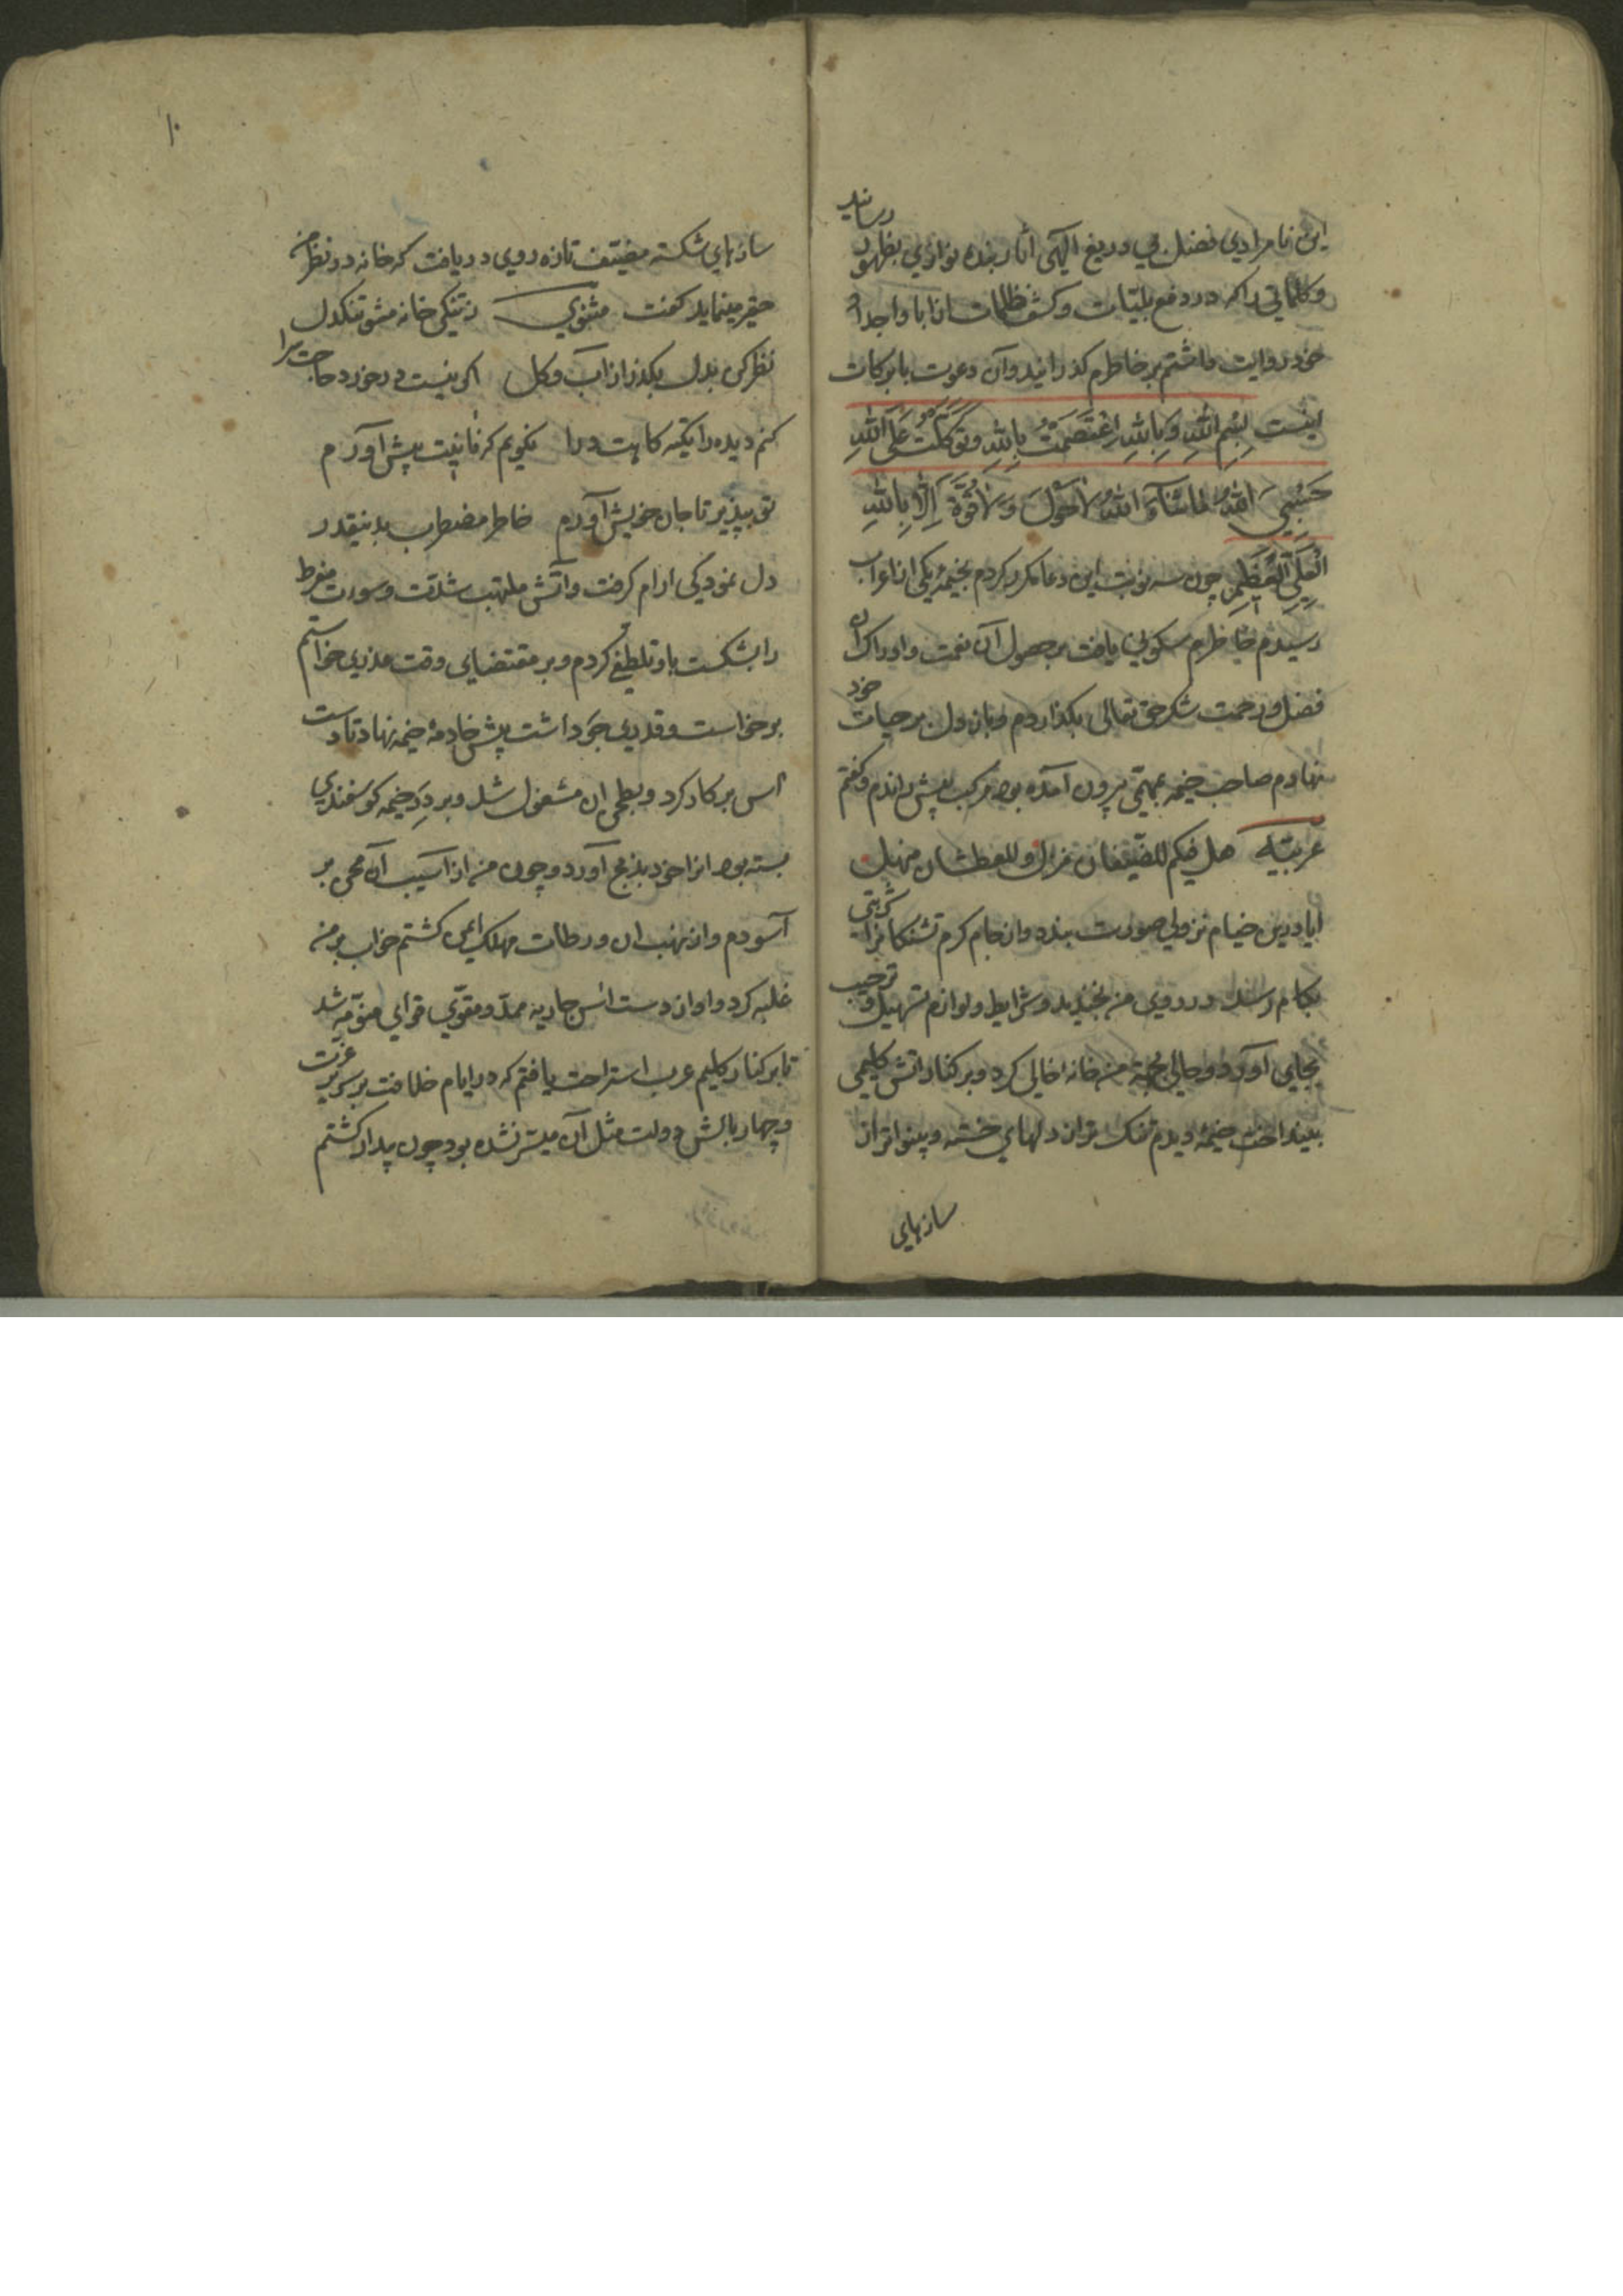 این نامرادی فضل بی دریغ الهی آثار بنده نوازی بظهور رسانید
وکلماتی راکه در دفع بلیّات وکشف ظلمات از ابا واجداد
خود روایت داشتم بر خاطرم کذرانید وآن دعوت بابرکات
اینست بِسْمِ اللهِ وَبِاللهِ اِعْتَصَمْتُ بِاللهِ وَتَوَکَّلْتُ عَلَی اللهِ
حَسْبِیَ اللهُ مَاشَآءَ اللهُ لاَحَوْلَ وَلاَقُوَّةَ اِلاَّ بِاللهِ
الْعَلِیِّ الْعَظِیْمِ چون سه نوبت این دعا مکرر کردم بخیمۀ یکی از اعراب
رسیدم خاطرم سکونی یافت بر حصول آن نعمت وادراک آن
فضل ورحمت شکر حق تعالی بکذاردم وباز دل بر حیات خود
نهادم صاحب خیمه بمهمّی بیرون آمده بود مرکب پیش راندم وکفتم
عربیّه هل فیکم للضیفان نزل وللعطشان منهل
ایا درین خیام نزولی صورت بندد واز جام کرم تشنکانرا شربتی
بکام رسد در روی من بخندید وشرایط ولوازم تسهیل وترحیب
بجای آورد وحالی بجهة من خانه خالی کرد وبر کنار آتش کلیمی
بینداخت خیمۀ دیدم تنک تر از دلهای خسته وبینواتر از
سازهای
۱۰
سازهای شکسته مضیّف تازه روی دریافت که خانه در نظر من
حقیر مینماید کفت مثنوی زتنکی خانه مشو تنکدل
نظر کن بدل بکذر از آب وکل اکر نیست در خورد حاجت سرا
کنم دیده را تکیه کاهت درا نکویم که نانیت پیش آورم
تو بپذیر تا جان خویش آورم خاطر مضطرب بدینقدر
دل نمودکی ارام کرفت وآتش ملتهب شدّت وسورت مفرط
را بشکست با او تلطفی کردم وبر مقتضای وقت عذری خواستم
برخواست وقدری جَو داشت پیش خادمۀ خیمه نهاد تا دست
آس بر کار کرد وبطحن ان مشغول شد وبر دَرِ خیمه کوسفندی
بسته بود انرا خود بذبح آورد وچون من از آسیب آن محن بر
آسودم واز نهیب ان ورطات مهلک ایمن کشتم خواب بر من
غلبه کرد واواز دست آس جاریه ممدّ ومقوّی قوای منوّمه شد
تا بر کنار کلیم عرب استراحت یافتم که در ایام خلافت بر سریر عزت
وچهار بالش دولت مثل آن میسّر نشده بود چون بیدار کشتم